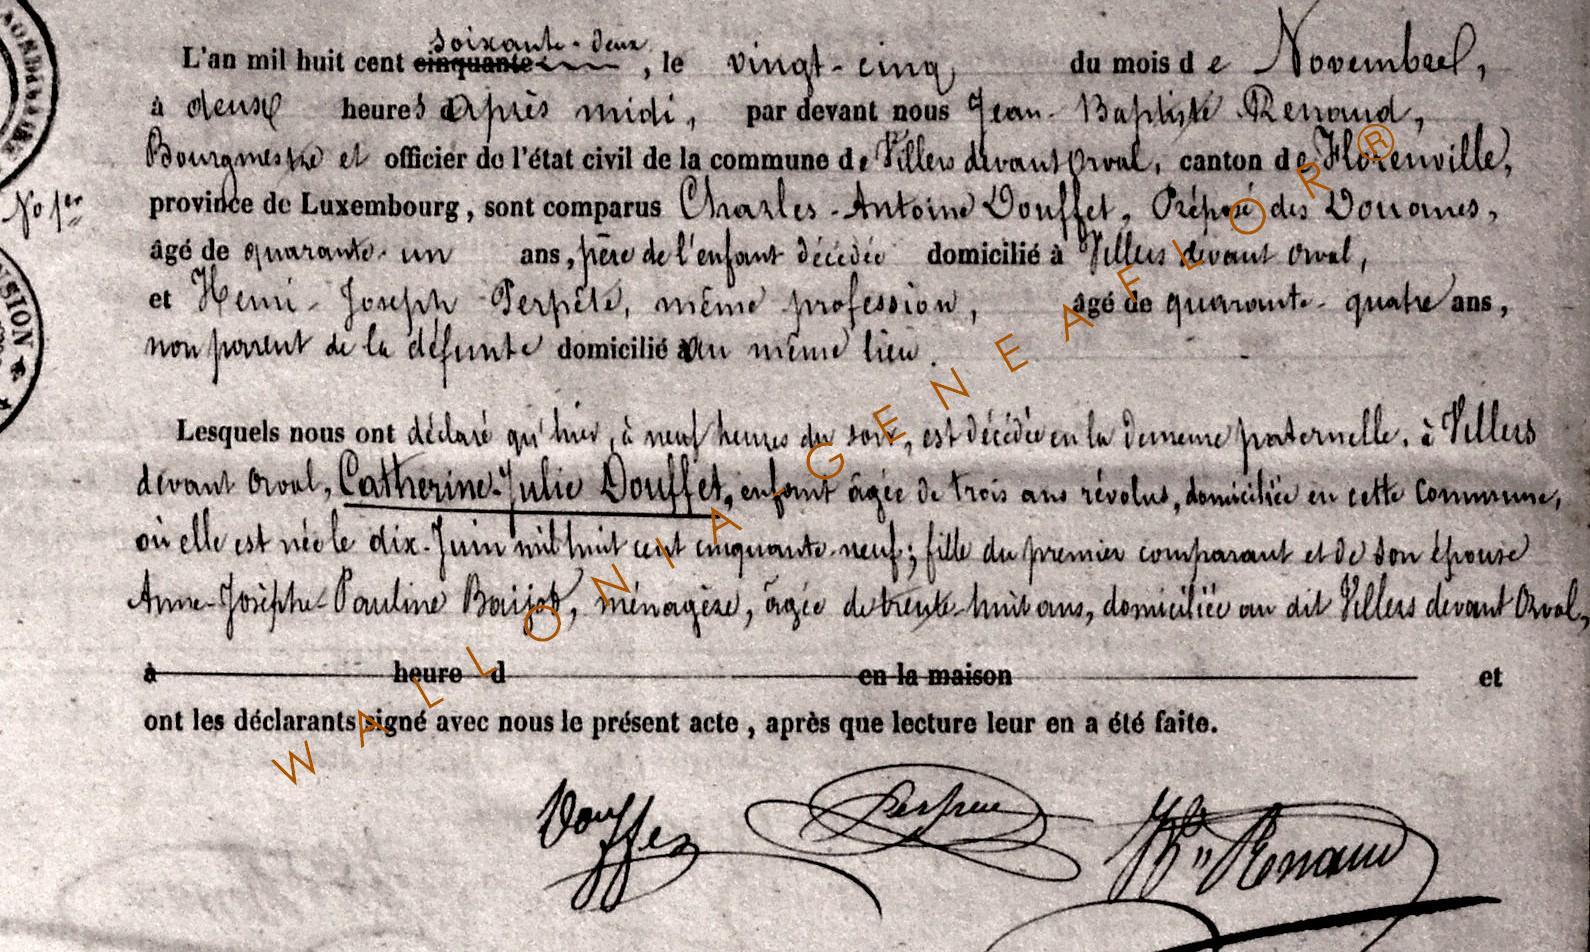 L'an mil huit cent cinquante soixante-deux, le vingt-cinq du mois de Novembre,
à deux heures Après midi, par devant nous Jean-Baptiste Renaud,
Bourgmestre et officier de l'état civil de la commune de Villers devant Orval, canton de Florenville,
No 1er
province de Luxembourg, sont comparus Charles-Antoine Douffet, Préposé des Douanes,
âgé de quarante-un ans, père de l'enfant décédée domicilié à Villers devant Orval,
et Henri-Joseph Perpète, même profession, âgé de quarante-quatre ans,
non parent de la défunte domicilié au même lieu.
Lesquels nous ont déclaré qu'hier, à neuf heures du soir, est décédée en la demeure paternelle, à Villers
devant Orval, Catherine-Julie Douffet, enfant âgée de trois ans révolus, domiciliée en cette Commune,
où elle est née le dix-Juin mil huit cent cinquante-neuf; fille du premier comparant et de son épouse
Anne-Josèphe-Pauline Baijot, ménagère, âgée de trente-huit ans, domiciliée au dit Villers devant Orval,
à heure d en la maison et
ont les déclarants signé avec nous le présent acte, après que lecture leur en a été faite.
Douffet Perpete JB Renaud
WALLONIA GENEAFLOR ®
SION